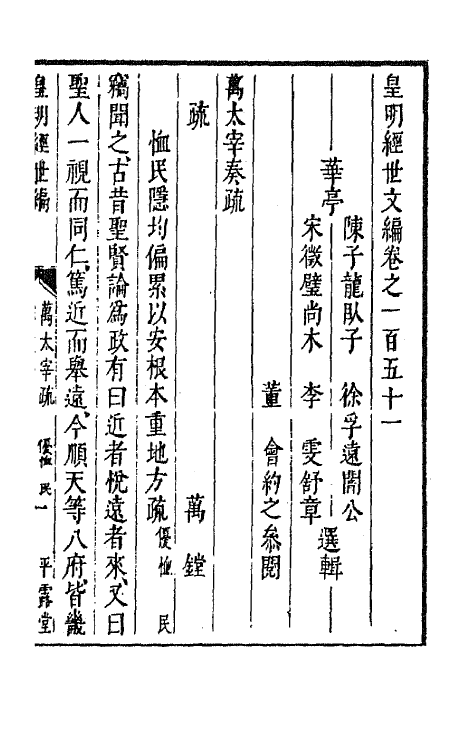 皇明經世文編卷之一百五十一
華亭
陳子龍臥子　徐孚遠闇公
宋徵璧尚木　李　雯舒章
選輯
董　會約之叅閱
萬太宰奏疏
疏　萬　鏜
恤民隱均偏累以安根本重地方疏　優恤　民
竊聞之、古昔聖賢論為政有曰近者悅遠者來、又曰
聖人一視而同仁、篤近而舉遠、今順天等八府、皆畿
皇明經世編　萬太宰疏　優恤　民　一　平露堂